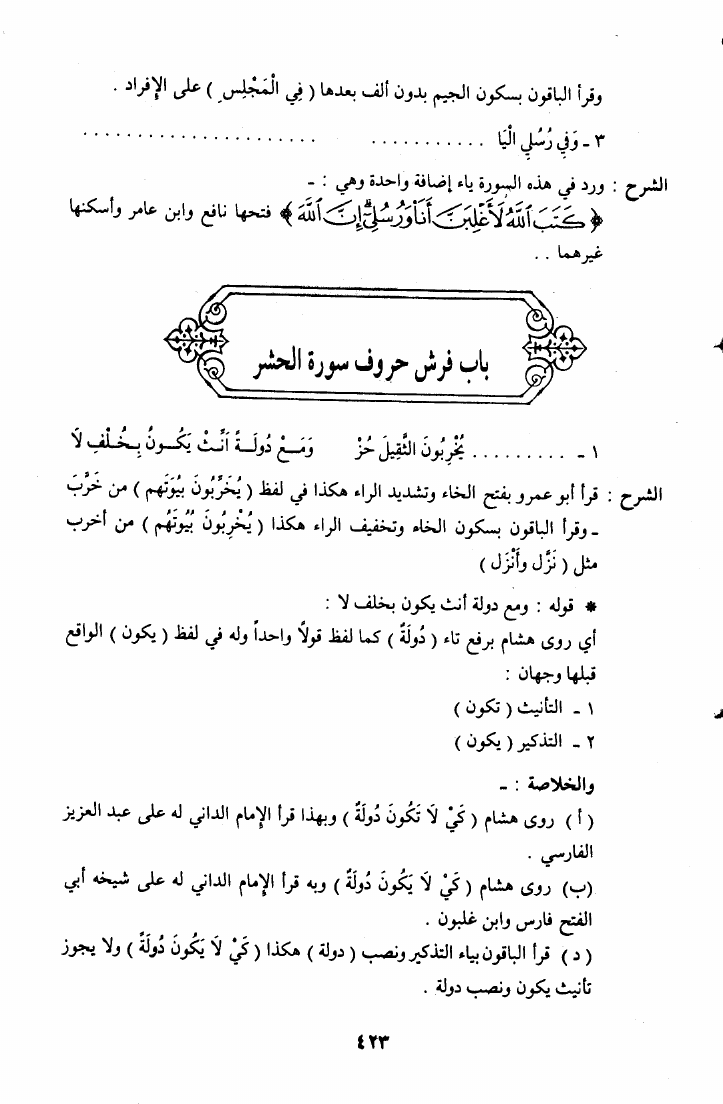 وقرأ الباقون بسكون الجيم بدون ألف بعدها ( فِي الْمَجْلِسِ ) على الإفراد .
٣ - وَفِي رُسُلِي الْيَا . . . . . . . . . . . . . . . . . . . . . . . . . . . . . . . . .
الشرح : ورد في هذه السورة ياء إضافة واحدة وهي : -
﴿ كَتَبَ ٱللَّهُ لَأَغْلِبَنَّ أَنَا۠ وَرُسُلِيٓۚ إِنَّ ٱللَّهَ ﴾ فتحها نافع وابن عامر وأسكنها
غيرهما . .
باب فرش حروف سورة الحشر
١ - . . . . . . . . . يُخْرِبُونَ الثَّقِيلَ حُزْ وَمَـعْ دُولَـةً أَنِّـثْ يَكُـونُ بِـخُـلْفِ لاَ
الشرح : قرأ أبو عمرو بفتح الخاء وتشديد الراء هكذا في لفظ ( يُخَرِّبُونَ بُيُوتَهم ) من خَرَّبَ
- وقرأ الباقون بسكون الخاء وتخفيف الراء هكذا ( يُخْرِبُونَ بُيُوتَهُم ) من أخرب
مثل ( نَزَّل وأَنْزَل )
* قوله : ومع دولة أنث يكون بخلف لا :
أي روى هشام برفع تاء ( دُولَةٌ ) كما لفظ قولاً واحداً وله في لفظ ( يكون ) الواقع
قبلها وجهان :
١ - التأنيث ( تكون )
٢ - التذكير ( يكون )
والخلاصة : -
( أ ) روى هشام ( كَيْ لاَ تَكُونَ دُولَةٌ ) وبهذا قرأ الإمام الداني له على عبد العزيز
الفارسي .
(ب) روى هشام ( كَيْ لاَ يَكُونَ دُولَةٌ ) وبه قرأ الإمام الداني له على شيخه أبي
الفتح فارس وابن غلبون .
( د ) قرأ الباقون بياء التذكير ونصب ( دولة ) هكذا ( كَيْ لاَ يَكُونَ دُولَةً ) ولا يجوز
تأنيث يكون ونصب دولة .
٤٢٣